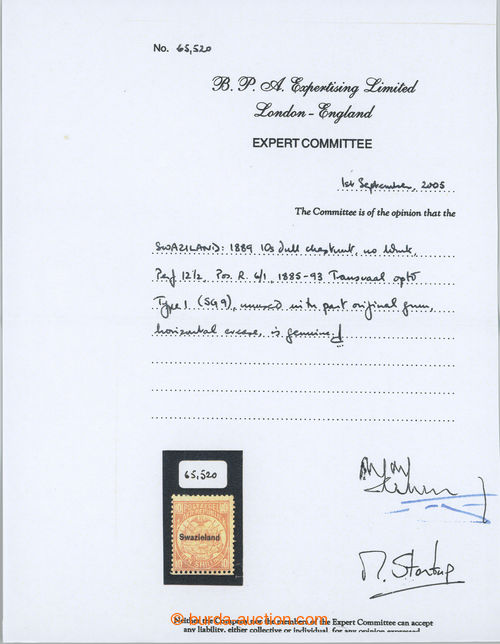 No. 65,520
B. P. A. Expertising Limited
London - England
EXPERT COMMITTEE
1st September, 2005
The Committee is of the opinion that the
SWAZILAND: 1889 10s dull chestnut, no Wmk,
Perf 12½, Pos. R. 6/1, 1885-93 Transvaal optd
Type 1 (SG9), unused with part original gum,
horizontal crease, is genuine.
65,520
10 10
Swazieland
10 10
M. Startup
Neither the Company nor the members of the Expert Committee can accept
any liability, either collective or individual, for any opinion expressed
© burda-auction.com